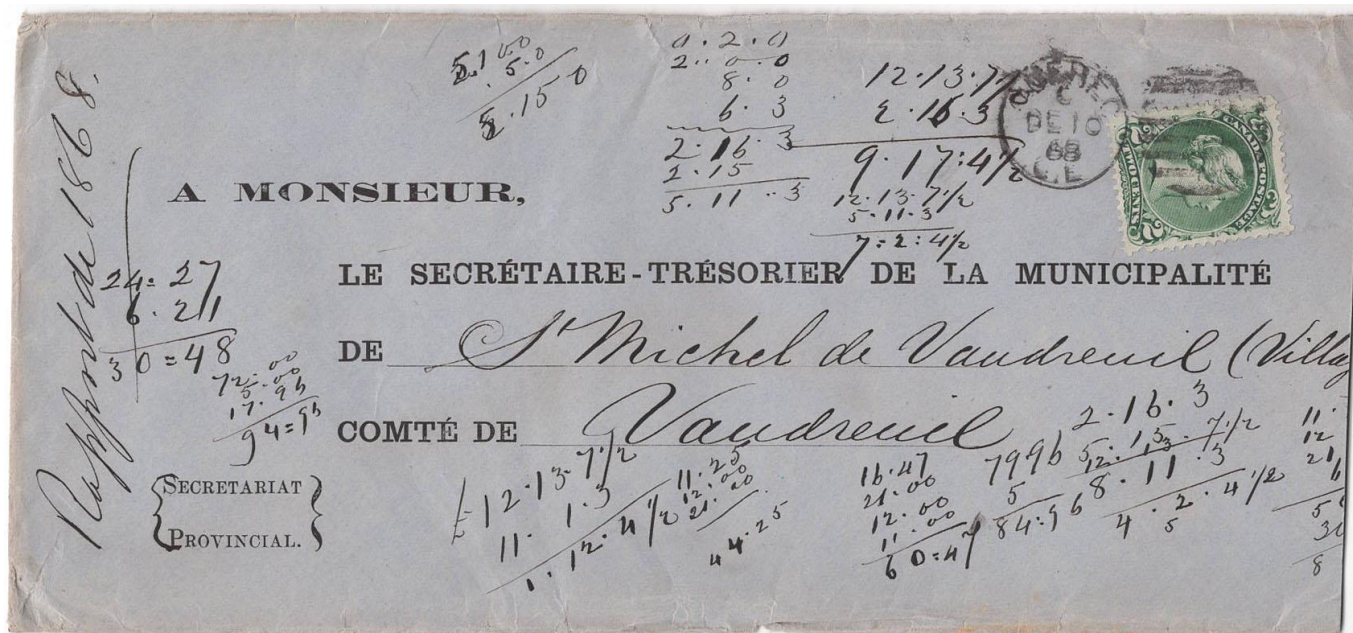 Rapport de 1868.
5.15 0
0.2.0
2.0.0
8.0
6.3
2.16.3
2.15
5.11..3
12.13.7½
2.16.3
9.17:4½
12.13.7½
5.11.3
7:2:4½
QUEBEC
C
DE 10
68
C.E
CANADA POSTAGE
TWO CENTS
2 2
A MONSIEUR,
LE SECRÉTAIRE-TRÉSORIER DE LA MUNICIPALITÉ
DE St Michel de Vaudreuil (Villag
COMTÉ DE Vaudreuil
24=27
6.21
30=48
72.00
5.00
17.96
94=96
{SECRETARIAT
PROVINCIAL.}
£12.13.7½
11. 1.3
1.12.4½
11.25
12.00
21.00
44.25
16.47
21.00
12.00
11.00
60=47
7996
5
84.96
2.16.3
5.15
8.11.3
12.13.7½
4.2.4½
5
11.
12
21